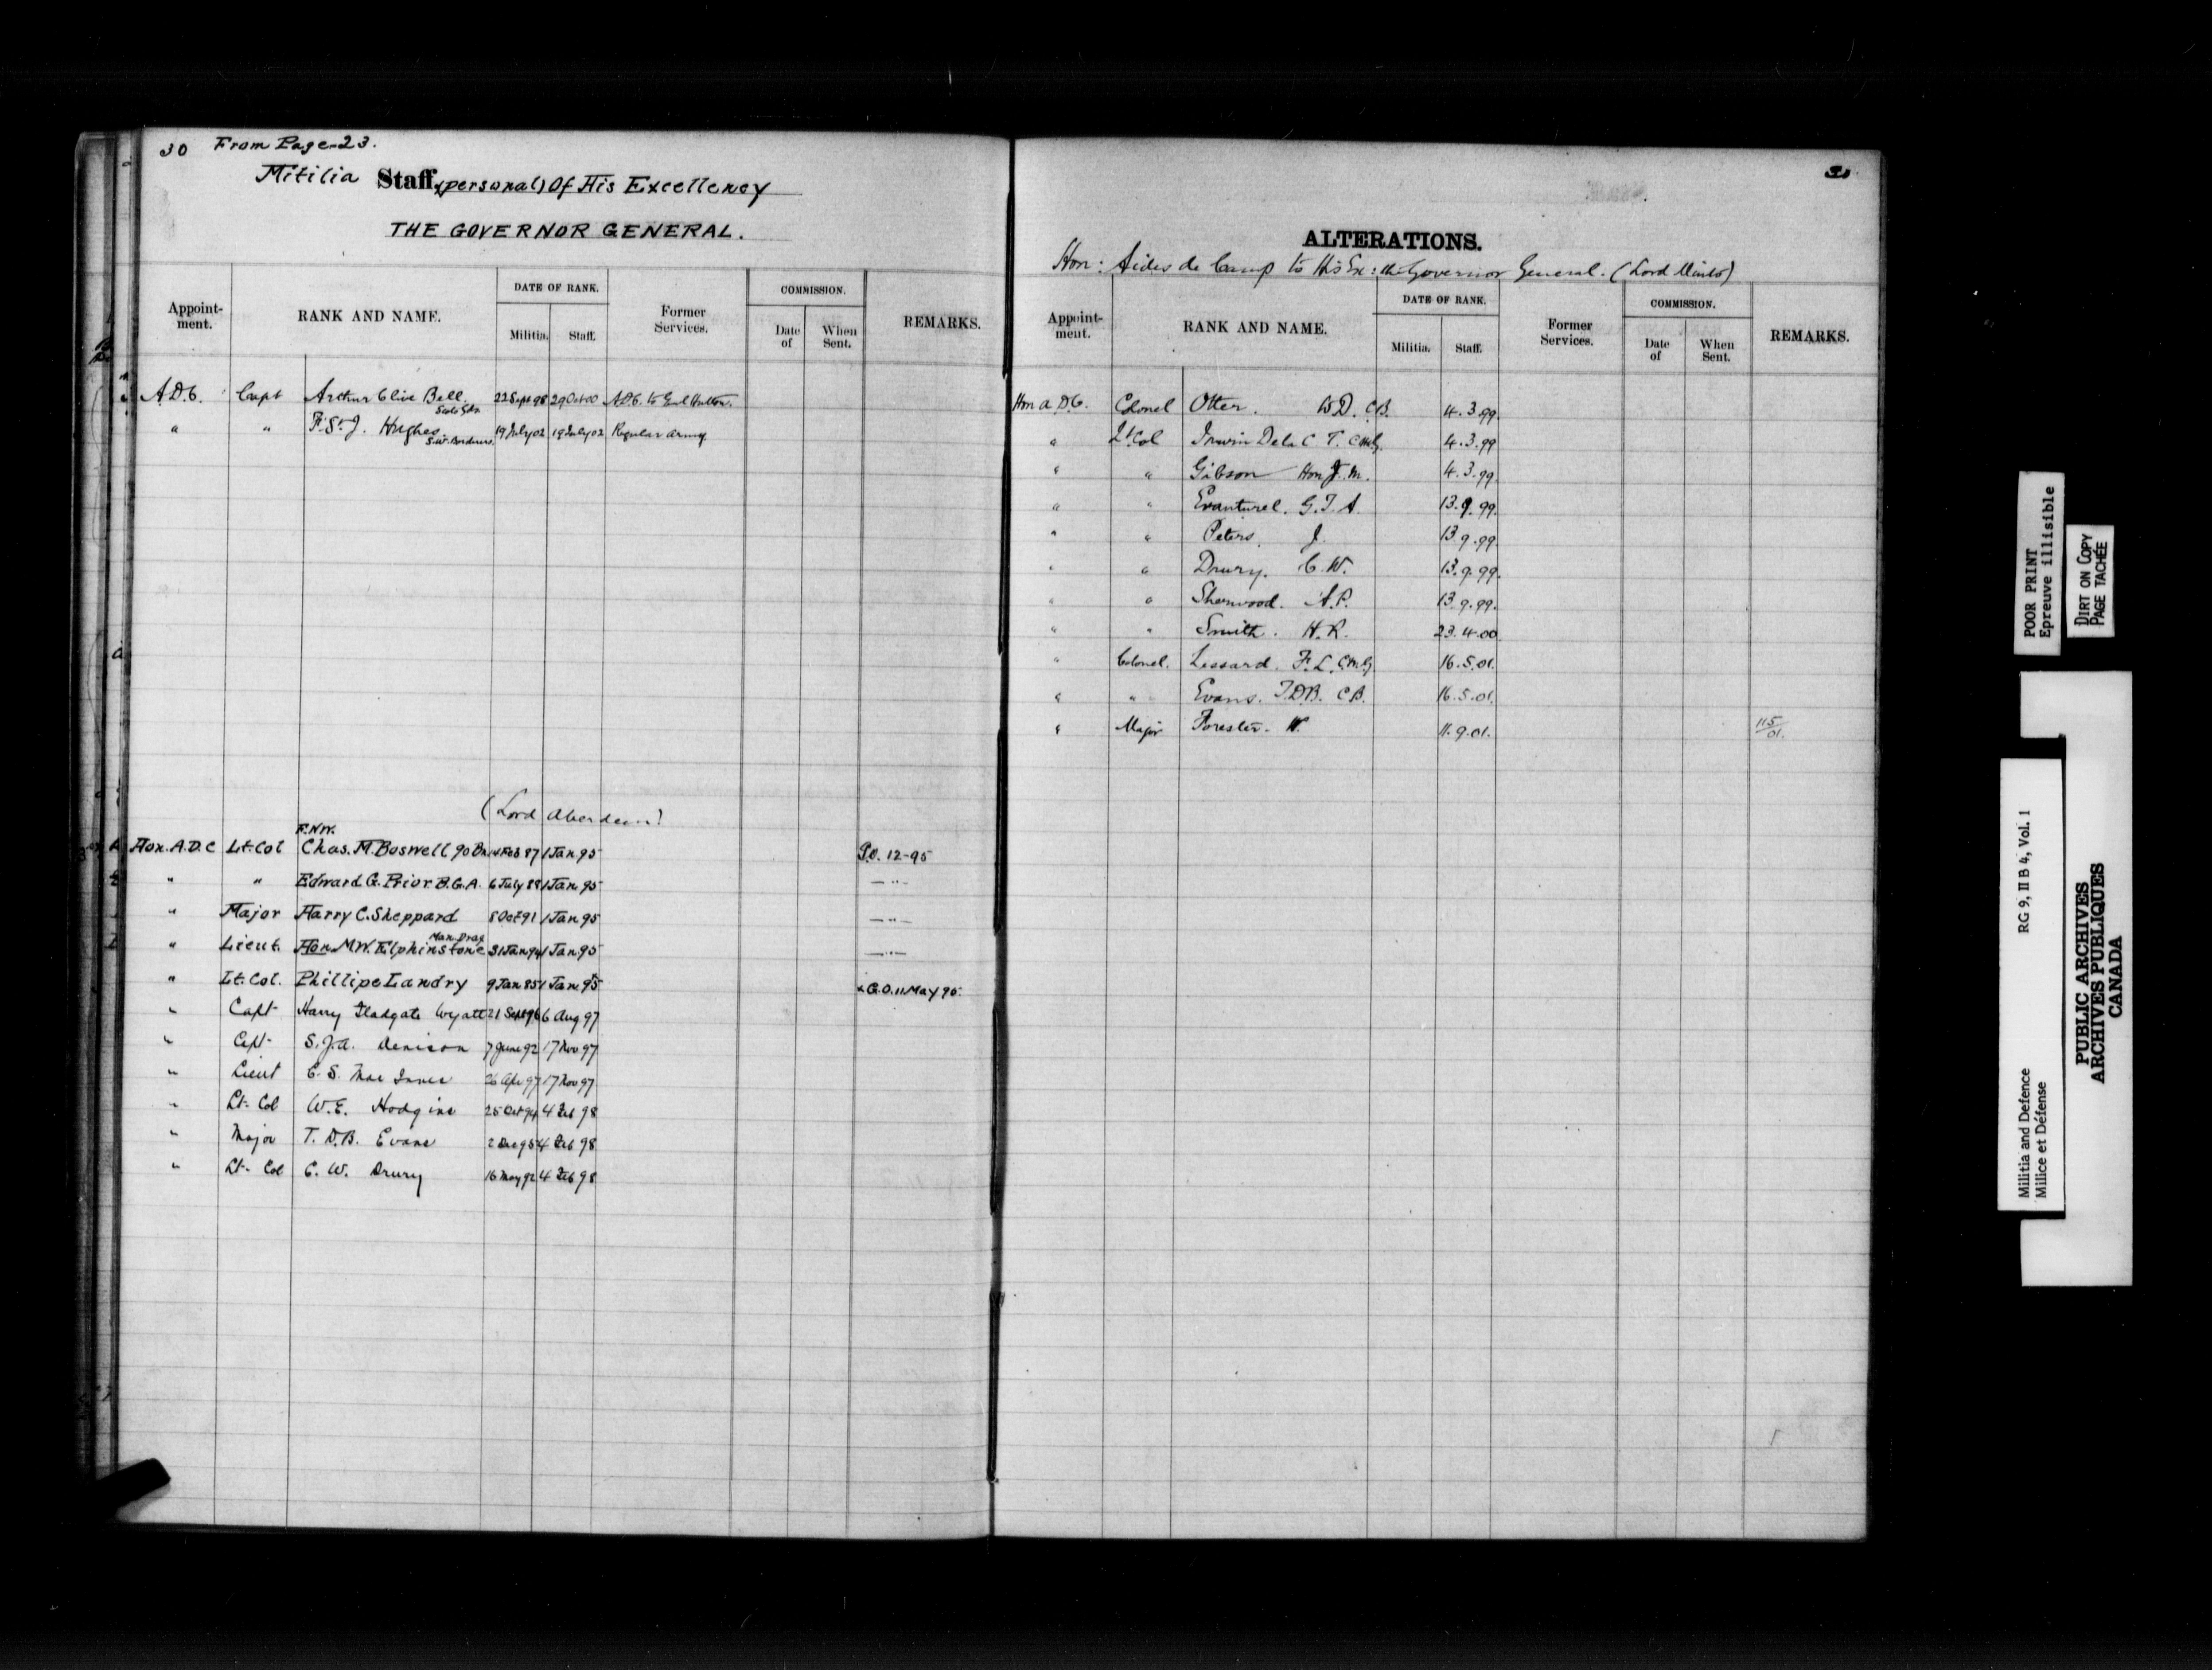 30 From Page 23.
Militia Staff (personal) Of His Excellency
THE GOVERNOR GENERAL.
Appoint-ment. RANK AND NAME. DATE OF RANK. Militia. Staff. Former Services. COMMISSION. Date of When Sent. REMARKS.
A.D.C. Capt Arthur Clive Bell. Scots Gds 22 Sept 98 29 Oct 00 A.D.C. to Genl Hutton.
" " F. St. J. Hughes S.W. Borderers 19 July 02 19 July 02 Regular Army
(Lord Aberdeen)
F.N.W.
Hon. A.D.C Lt. Col Chas. M. Boswell 90 Bn 14 Feb 87 1 Jan 95 G.O. 12-95
" " Edward G. Prior B.G.A. 6 July 88 1 Jan 95 — " —
" Major Harry C. Sheppard 8 Oct 91 1 Jan 95 — " —
" Lieut. Hon. M.W. Elphinstone Man. Drag 31 Jan 94 1 Jan 95 — " —
" Lt. Col. Phillipe Landry 9 Jan 85 1 Jan 95 G.O. 11 May 95.
" Capt Harry Fladgate Wyatt 21 Sept 96 6 Aug 97
" Capt S.J.A. Denison 7 June 92 17 Nov 97
" Lieut C.S. Mac Innes 26 Apr 97 17 Nov 97
" Lt. Col W.E. Hodgins 25 Oct 94 4 Feb 98
" Major T.D.B. Evans 2 Dec 95 4 Feb 98
" Lt. Col C.W. Drury 16 May 92 4 Feb 98
ALTERATIONS.
Hon: Aides de Camp to His Ex: the Governor General. (Lord Minto)
Appoint-ment. RANK AND NAME. DATE OF RANK. Militia. Staff. Former Services. COMMISSION. Date of When Sent. REMARKS.
Hon A.D.C. Colonel Otter. W.D. C.B. 4.3.99
" Lt Col Irwin De la C T. C.M.G. 4.3.99
" " Gibson Hon J.M. 4.3.99
" " Evanturel. G.T.A 13.9.99.
" " Peters, J. 13.9.99.
" " Drury. C.W. 13.9.99.
" " Sherwood. A.P. 13.9.99.
" " Smith. H.R. 23.4.00
" Colonel. Lessard. F.L. C.M.G. 16.5.01.
" " Evans. T.D.B. C.B. 16.5.01.
" Major Forester. W. 11.9.01. 115/01.
POOR PRINT
Epreuve illisible
DIRT ON COPY
PAGE TACHÉE
Militia and Defence RG 9, II B 4, Vol. 1
Milice et Défense
PUBLIC ARCHIVES
ARCHIVES PUBLIQUES
CANADA